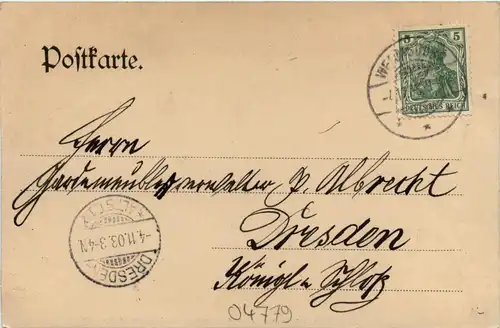 Postkarte.
5 5
DEUTSCHES REICH
Herrn
Gardemeublesverwalter P. Albrecht
Dresden
Königl. Schloß
DRESDEN ALTST.
-4.11.03. 3-4 N.
04779